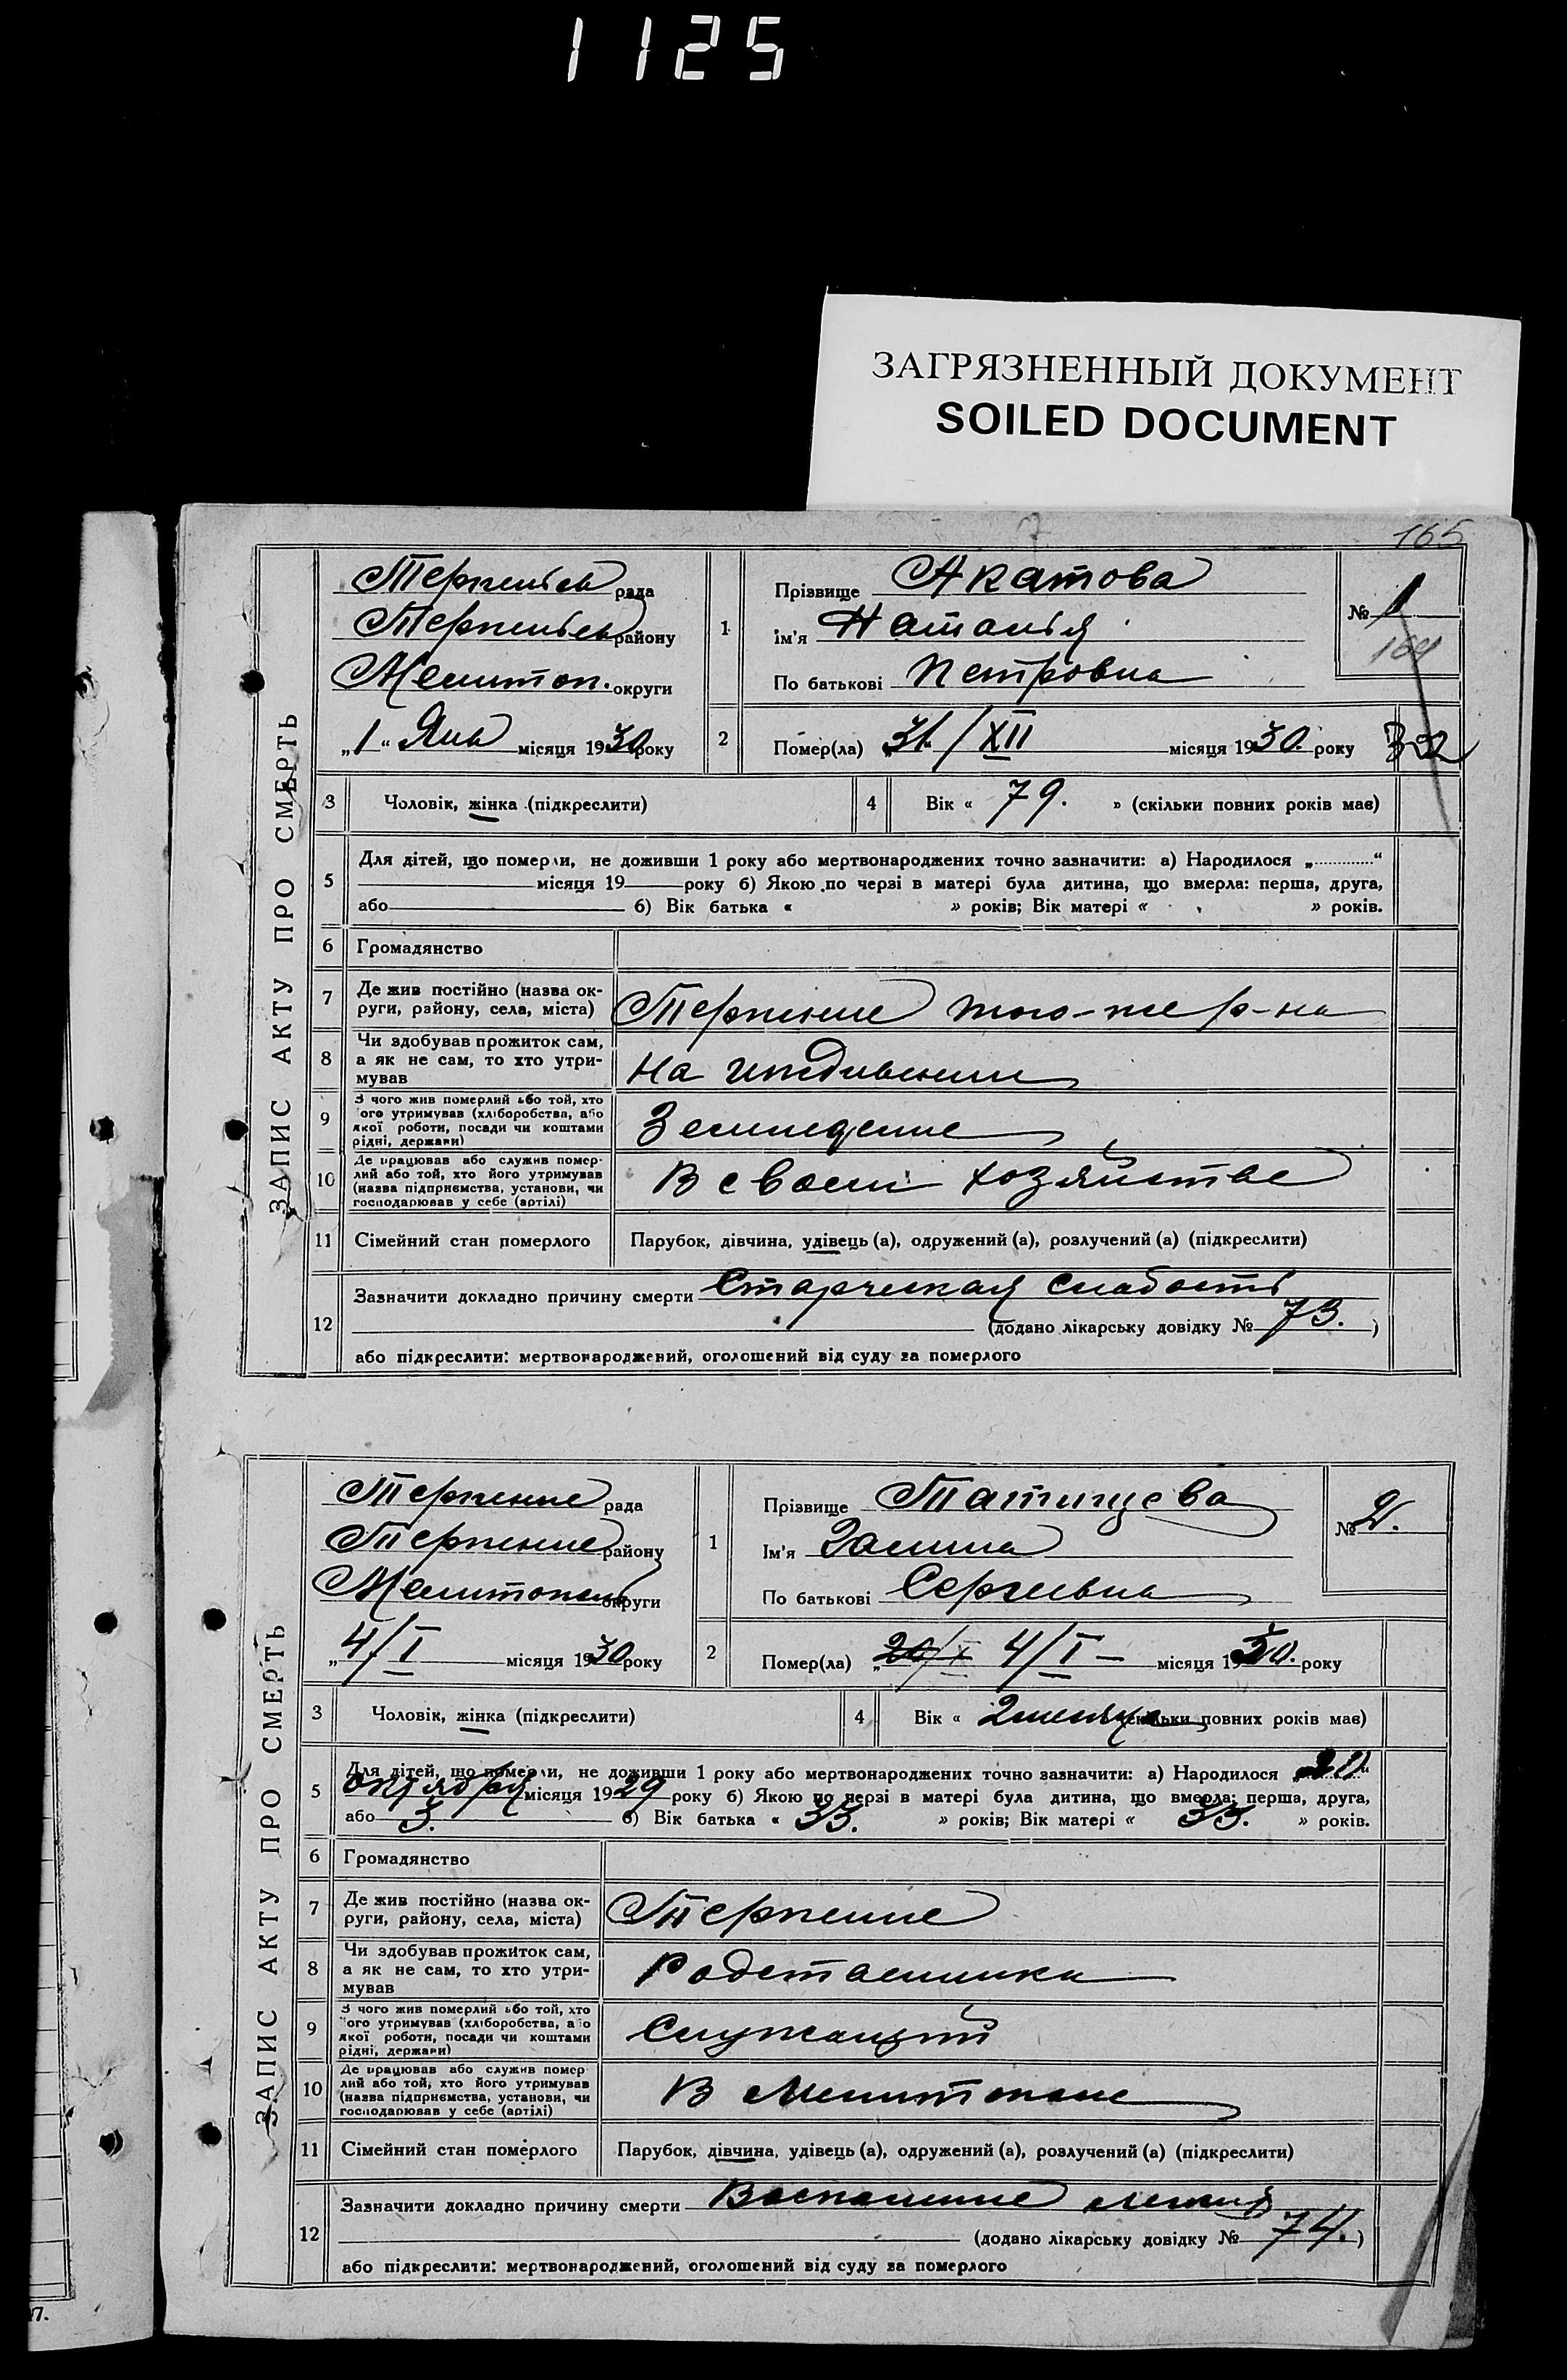 1125
ЗАГРЯЗНЕННЫЙ ДОКУМЕНТ
SOILED DOCUMENT
165
ЗАПИС АКТУ ПРО СМЕРТЬ
рада
району
Мелитоп. округи
„1“ Янв місяця 1930 року
1
Прізвище Акатова
Ім'я Наталья
По батькові Петровна
№ 1
164
2
Помер(ла) „31/XII місяця 1930. року
3
Чоловік, жінка (підкреслити)
4
Вік « 79. » (скільки повних років має)
5
Для дітей, що померли, не доживши 1 року або мертвонароджених точно зазначити: а) Народилося „ “
місяця 19 року б) Якою по черзі в матері була дитина, що вмерла: перша, друга,
або б) Вік батька « » років; Вік матері « » років.
6
Громадянство
7
Де жив постійно (назва ок-
руги, району, села, міста)
Терпение того-же р-на
8
Чи здобував прожиток сам,
а як не сам, то хто утри-
мував
На иждивении
9
З чого жив померлий або той, хто
ого утримував (хліборобства, або
якої роботи, посади чи коштами
рідні, держави)
Земледелие
10
Де працював або служив помер-
лий або той, хто його утримував
(назва підприємства, установи, чи
господарював у себе (артілі)
В своем хозяйстве
11
Сімейний стан померлого
Парубок, дівчина, удівець (а), одружений (а), розлучений (а) (підкреслити)
12
Зазначити докладно причину смерти Старческая слабость
(додано лікарську довідку № 73. )
або підкреслити: мертвонароджений, оголошений від суду за померлого
ЗАПИС АКТУ ПРО СМЕРТЬ
Терпение рада
Терпение району
округи
„4/I місяця 1930 року
1
Прізвище Татищева
Ім'я Галина
По батькові Сергеевна
№ 2.
2
Помер(ла) „20/X 4/I – місяця 1930. року
3
Чоловік, жінка (підкреслити)
4
Вік « 2 месяца скільки повних років має)
5
Для дітей, що померли, не доживши 1 року або мертвонароджених точно зазначити: а) Народилося „20“
октября місяця 1929 року б) Якою по черзі в матері була дитина, що вмерла: перша, друга,
або 3. б) Вік батька « 33. » років; Вік матері « 33. » років.
6
Громадянство
7
Де жив постійно (назва ок-
руги, району, села, міста)
Терпение
8
Чи здобував прожиток сам,
а як не сам, то хто утри-
мував
9
З чого жив померлий або той, хто
ого утримував (хліборобства, або
якої роботи, посади чи коштами
рідні, держави)
Служащий
10
Де працював або служив помер
лий або той, хто його утримував
(назва підприємства, установи, чи
господарював у себе (артілі)
В Мелитополе
11
Сімейний стан померлого
Парубок, дівчина, удівець (а), одружений (а), розлучений (а) (підкреслити)
12
Зазначити докладно причину смерти Воспаление легких
(додано лікарську довідку № 74. )
або підкреслити: мертвонароджений, оголошений від суду за померлого